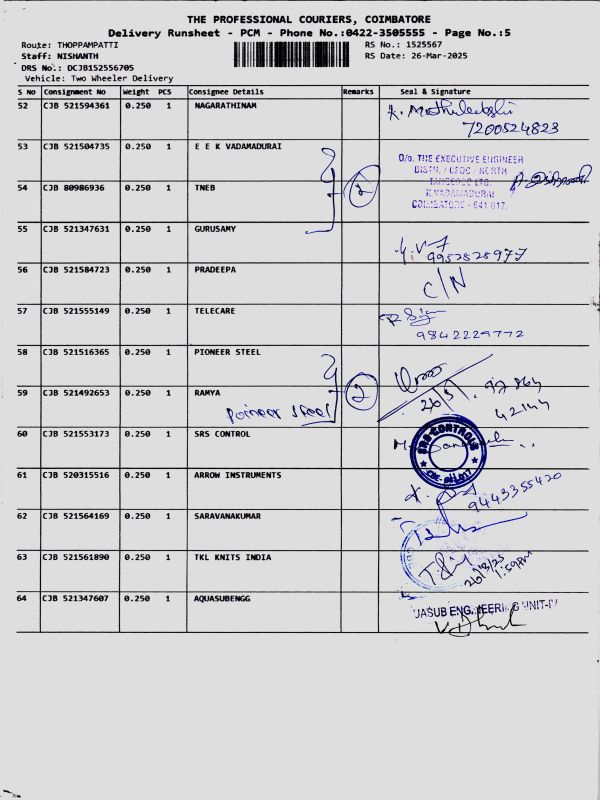 THE PROFESSIONAL COURIERS, COIMBATORE
Delivery Runsheet - PCM - Phone No.:0422-3505555 - Page No.:5
Route: THOPPAMPATTI
Staff: NISHANTH
DRS No.: DCJB152556705
Vehicle: Two Wheeler Delivery
RS No.: 1525567
RS Date: 26-Mar-2025
S No Consignment No Weight PCS Consignee Details Remarks Seal & Signature
52 CJB 521594361 0.250 1 NAGARATHINAM
7200524823
53 CJB 521504735 0.250 1 E E K VADAMADURAI
O/o. THE EXECUTIVE ENGINEER
DISTN. / CEDC / NORTH
54 CJB 80986936 0.250 1 TNEB 2
TANGEDCO LTD.
K.VADAMADURAI
COIMBATORE - 641 017.
55 CJB 521347631 0.250 1 GURUSAMY
9952828977
56 CJB 521584723 0.250 1 PRADEEPA
C/N
57 CJB 521555149 0.250 1 TELECARE
9842229772
58 CJB 521516365 0.250 1 PIONEER STEEL
59 CJB 521492653 0.250 1 RAMYA 2
Poineer Steel
26/3/. 97864
42144
60 CJB 521553173 0.250 1 SRS CONTROL
SRS CONTROLS
61 CJB 520315516 0.250 1 ARROW INSTRUMENTS
9443355420
62 CJB 521564169 0.250 1 SARAVANAKUMAR
63 CJB 521561890 0.250 1 TKL KNITS INDIA
26/3/25
1:59PM
64 CJB 521347607 0.250 1 AQUASUBENGG